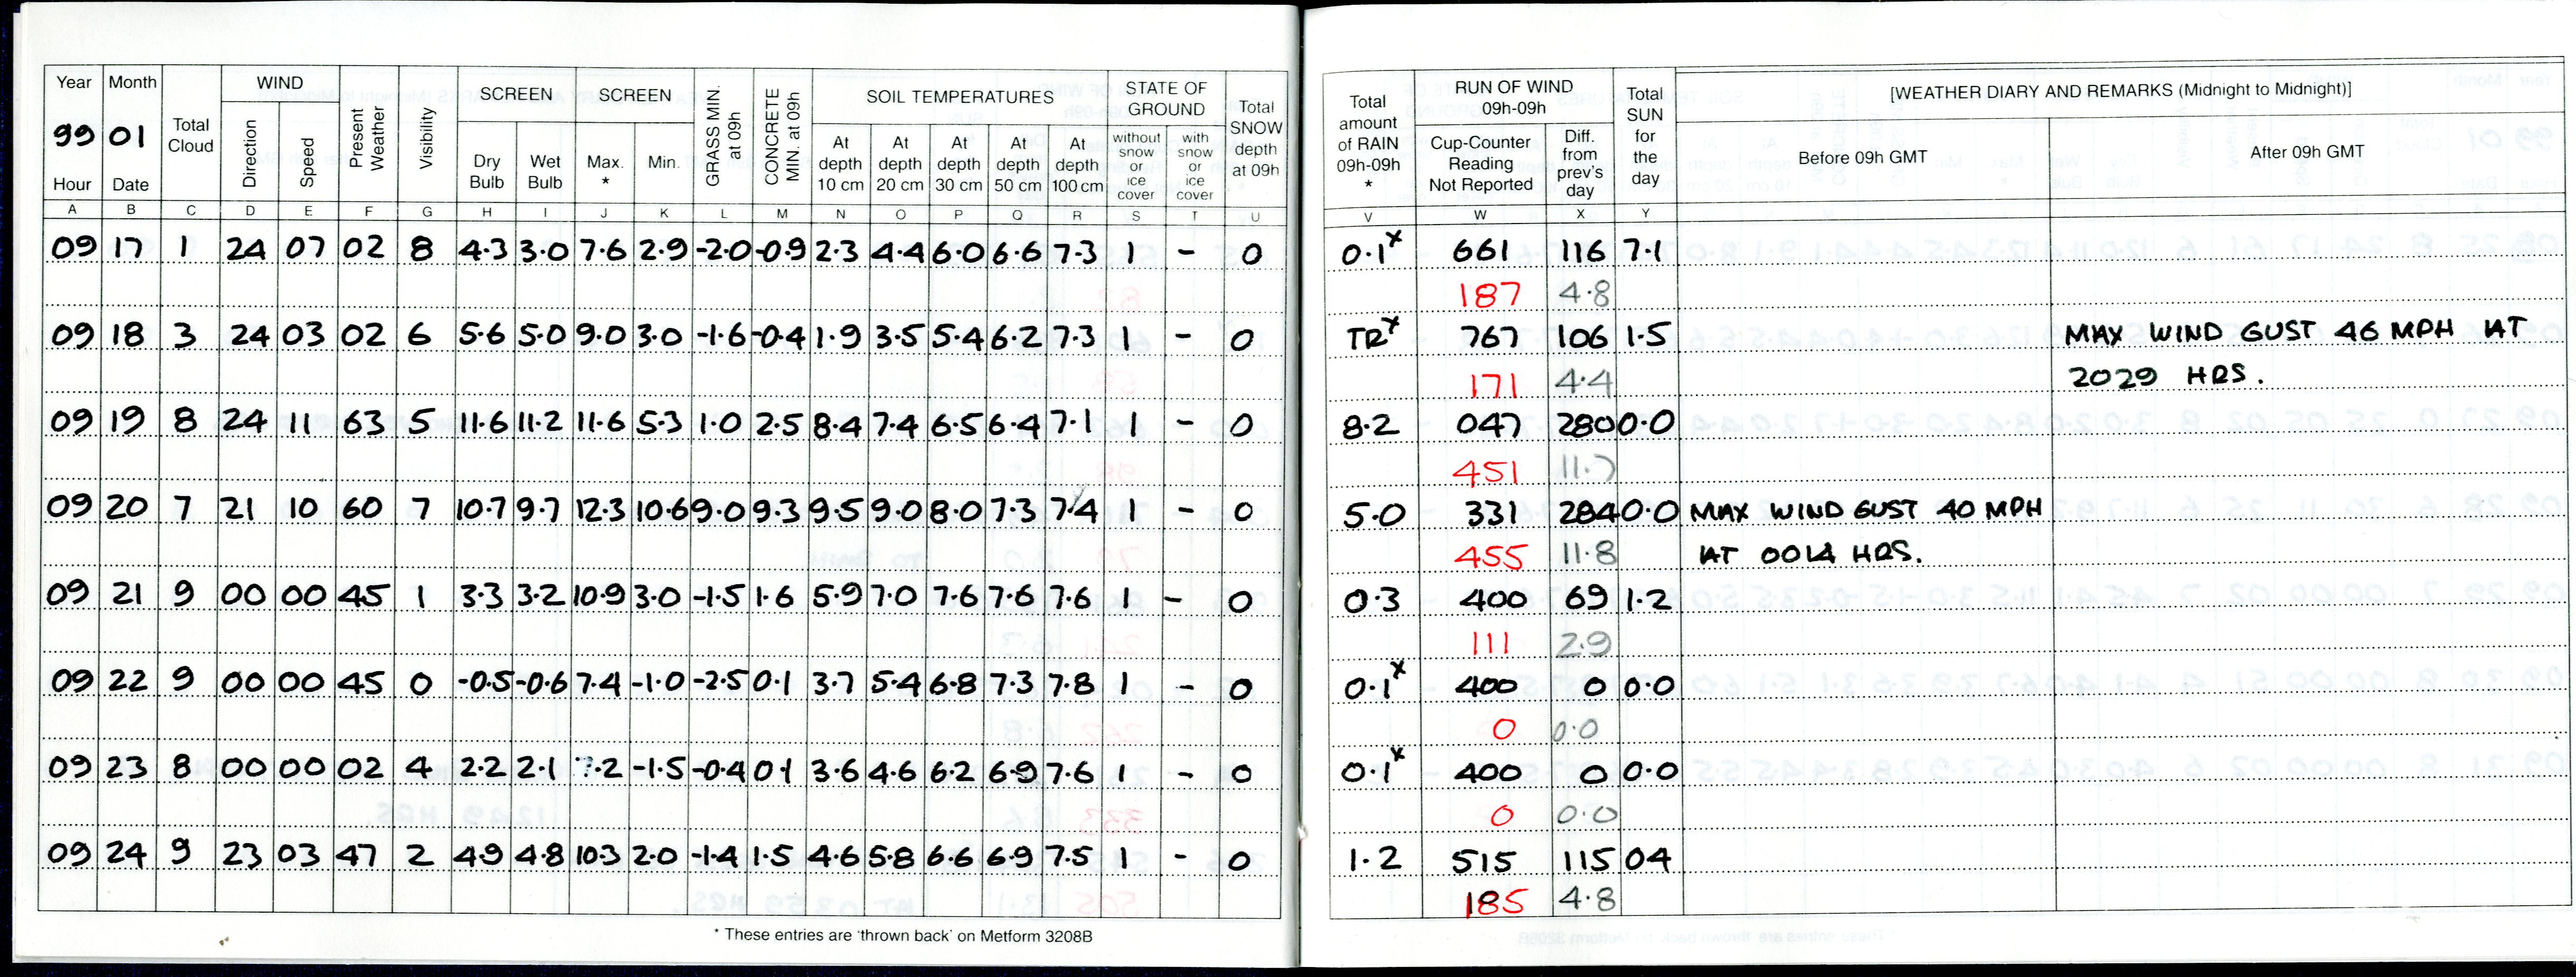 Year Month Total Cloud WIND Present Weather Visibility SCREEN SCREEN GRASS MIN. at 09h CONCRETE MIN. at 09h SOIL TEMPERATURES STATE OF GROUND Total SNOW depth at 09h Total amount of RAIN 09h-09h * RUN OF WIND 09h-09h Total SUN for the day [WEATHER DIARY AND REMARKS (Midnight to Midnight)]
99 01 Direction Speed Dry Bulb Wet Bulb Max. * Min. At depth 10 cm At depth 20 cm At depth 30 cm At depth 50 cm At depth 100 cm without snow or ice cover with snow or ice cover Cup-Counter Reading Not Reported Diff. from prev's day Before 09h GMT After 09h GMT
Hour Date
A B C D E F G H I J K L M N O P Q R S T U V W X Y
09 17 1 24 07 02 8 4.3 3.0 7.6 2.9 -2.0 -0.9 2.3 4.4 6.0 6.6 7.3 1 - 0 0.1x 661 116 7.1
187 4.8
09 18 3 24 03 02 6 5.6 5.0 9.0 3.0 -1.6 -0.4 1.9 3.5 5.4 6.2 7.3 1 - 0 TRx 767 106 1.5 MAX WIND GUST 46 MPH AT
171 4.4 2029 HRS.
09 19 8 24 11 63 5 11.6 11.2 11.6 5.3 1.0 2.5 8.4 7.4 6.5 6.4 7.1 1 - 0 8.2 047 280 0.0
451 11.7
09 20 7 21 10 60 7 10.7 9.7 12.3 10.6 9.0 9.3 9.5 9.0 8.0 7.3 7.4 1 - 0 5.0 331 284 0.0 MAX WIND GUST 40 MPH
455 11.8 AT 0014 HRS.
09 21 9 00 00 45 1 3.3 3.2 10.9 3.0 -1.5 1.6 5.9 7.0 7.6 7.6 7.6 1 - 0 0.3 400 69 1.2
111 2.9
09 22 9 00 00 45 0 -0.5 -0.6 7.4 -1.0 -2.5 0.1 3.7 5.4 6.8 7.3 7.8 1 - 0 0.1x 400 0 0.0
0 0.0
09 23 8 00 00 02 4 2.2 2.1 7.2 -1.5 -0.4 0.1 3.6 4.6 6.2 6.9 7.6 1 - 0 0.1x 400 0 0.0
0 0.0
09 24 9 23 03 47 2 4.9 4.8 10.3 2.0 -1.4 1.5 4.6 5.8 6.6 6.9 7.5 1 - 0 1.2 515 115 04
185 4.8
* These entries are 'thrown back' on Metform 3208B